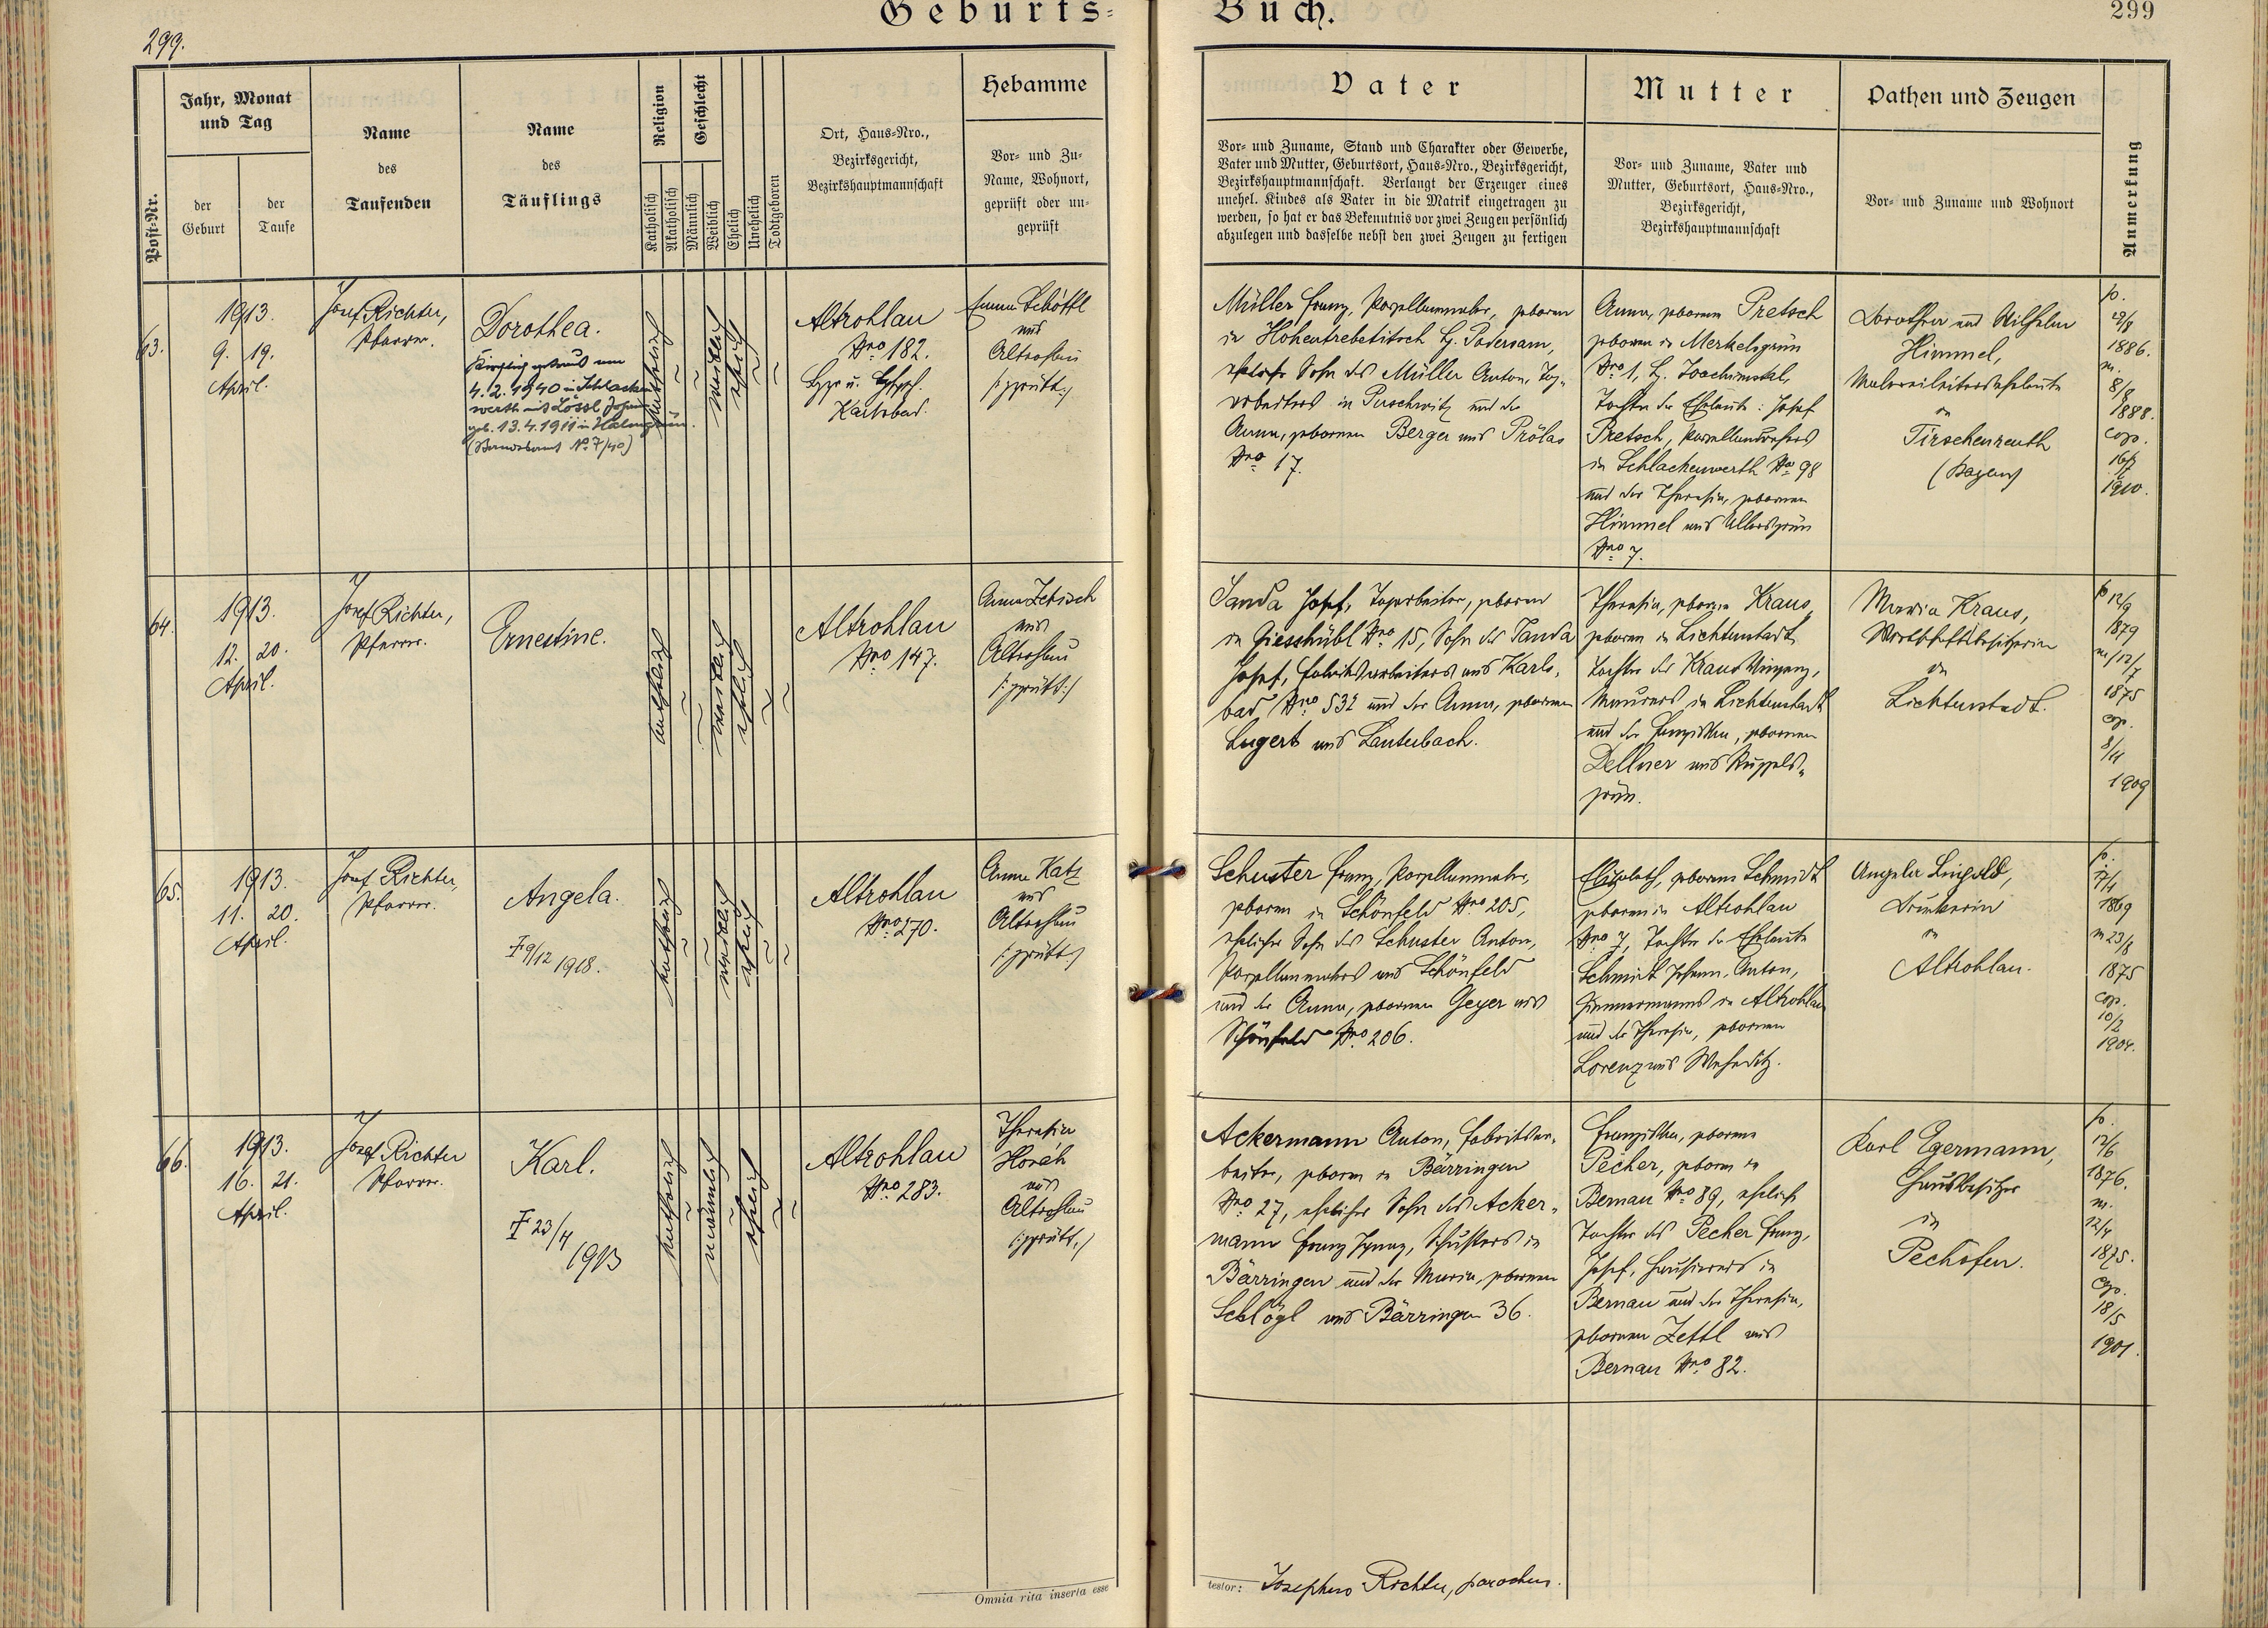 Geburts-
Buch.
299
299.
Post-Nr.
Jahr, Monat
und Tag
der
Geburt
der
Taufe
Name
des
Taufenden
Name
des
Täuflings
Religion
Katholisch
Akatholisch
Geschlecht
Männlich
Weiblich
Ehelich
Unehelich
Todtgeboren
Ort, Haus-Nro.,
Bezirksgericht,
Bezirkshauptmannschaft
Hebamme
Vor- und Zu-
Name, Wohnort,
geprüft oder un-
geprüft
Vater
Vor- und Zuname, Stand und Charakter oder Gewerbe,
Vater und Mutter, Geburtsort, Haus-Nro., Bezirksgericht,
Bezirkshauptmannschaft. Verlangt der Erzeuger eines
unehel. Kindes als Vater in die Matrik eingetragen zu
werden, so hat er das Bekenntnis vor zwei Zeugen persönlich
abzulegen und dasselbe nebst den zwei Zeugen zu fertigen
Mutter
Vor- und Zuname, Vater und
Mutter, Geburtsort, Haus-Nro.,
Bezirksgericht,
Bezirkshauptmannschaft
Pathen und Zeugen
Vor- und Zuname und Wohnort
Anmerkung
63.
1913.
9. 19.
April.
Josef Richter,
Pfarrer.
Dorothea.
Kirchlich getraut am
4.2.1940 in Schlacken-
werth mit Lössl Johann
geb. 13.4.1911 in
(Standesamt No 7/40)
katholisch
weiblich
ehelich
Altrohlau
Nro 182.
Karlsbad.
Emma Schöttl
aus
Altrohlau
/:geprüft:/
Müller Franz, Porzellanmaler, geboren
in Hohentrebetitsch B. Podersam,
ehelicher Sohn des Müller Anton, Tag-
arbeiters in Puschwitz und der
Anna, geborenen Berger aus Prölas
Nro 17.
Anna, geborene Pretsch
geboren in Merkelsgrün
Nro 1, B. Joachimstal,
Tochter der Eheleute: Josef
Pretsch, Porzellandrehers
in Schlackenwerth No 98
und der Theresia, geborenen
Himmel aus Ullersgrün
Nro 7.
Dorothea und Wilhelm
Himmel,
Malereileiterseheleute
in
Tirschenreuth
(Bayern)
p.
1886.
m.
8/8
1888.
cop.
1910.
64.
1913.
12. 20.
April.
Josef Richter,
Pfarrer.
Ernestine.
katholisch
weiblich
ehelich
Altrohlau
Nro 147.
Anna Zetisch
aus
Altrohlau
/:geprüft:/
Janda Josef, Tagarbeiter, geboren
in Giesshübl Nro 15, Sohn des Janda
Josef, Fabriksarbeiters aus Karls-
bad Nro 532 und der Anna, geborenen
Lugert aus Lauterbach.
Theresia, geborene Kraus,
geboren in Lichtenstadt
Tochter des Kraus Vinzenz,
Maurers in Lichtenstadt
und der Franziska, geborenen
Dellner aus Ruppels-
grün.
Maria Kraus,
Wirtschaftsbesitzerin
in
Lichtenstadt.
p 12/9
1879
m 12/7
1875
cop.
8/11
1909
65.
1913.
11. 20.
April.
Josef Richter,
Pfarrer.
Angela.
9/12 1918.
katholisch
weiblich
ehelich
Altrohlau
Nro 270.
Anna Katz
aus
Altrohlau
/:geprüft:/
Schuster Franz, Porzellanmaler,
geboren in Schönfeld Nro 205,
ehelicher Sohn des Schuster Anton,
Porzellanmalers aus Schönfeld
und der Anna, geborenen Geyer aus
Schönfeld Nro 206.
Elisabeth, geborene Schmidt
geboren in Altrohlau
Nro 7, Tochter der Eheleute
Schmidt Johann, Anton,
Zimmermanns in Altrohlau
und der Theresia, geborenen
Lorenz aus Weheditz.
Angela Lingold,
Druckerin
in
Altrohlau.
p.
1869
m 23/8
1875
cop.
10/2
1904.
66.
1913.
16. 21.
April.
Josef Richter
Pfarrer.
Karl.
23/4
1913
katholisch
männlich
ehelich
Altrohlau
Nro 283.
Theresia
Horák
aus
Altrohlau
/:geprüft:/
Ackermann Anton, Fabriksar-
beiter, geboren in Bärringen
Nro 27, ehelicher Sohn des Acker-
mann Franz Ignaz, Schusters in
Bärringen und der Maria, geborenen
Schlögl aus Bärringen 36.
Franziska, geborene
Pecher, geboren in
Bernau Nro 89, eheliche
Tochter des Pecher Franz,
Josef, Hausierers in
Bernau und der Theresia,
geborenen Zettl aus
Bernau Nro 82.
Karl Egermann,
Hausbesitzer
in
Pechöfen.
p.
12/6
1876.
m.
12/4
1875.
cop.
18/5
1901.
Omnia rita inserta esse
testor: Josephus Richter, parochus.